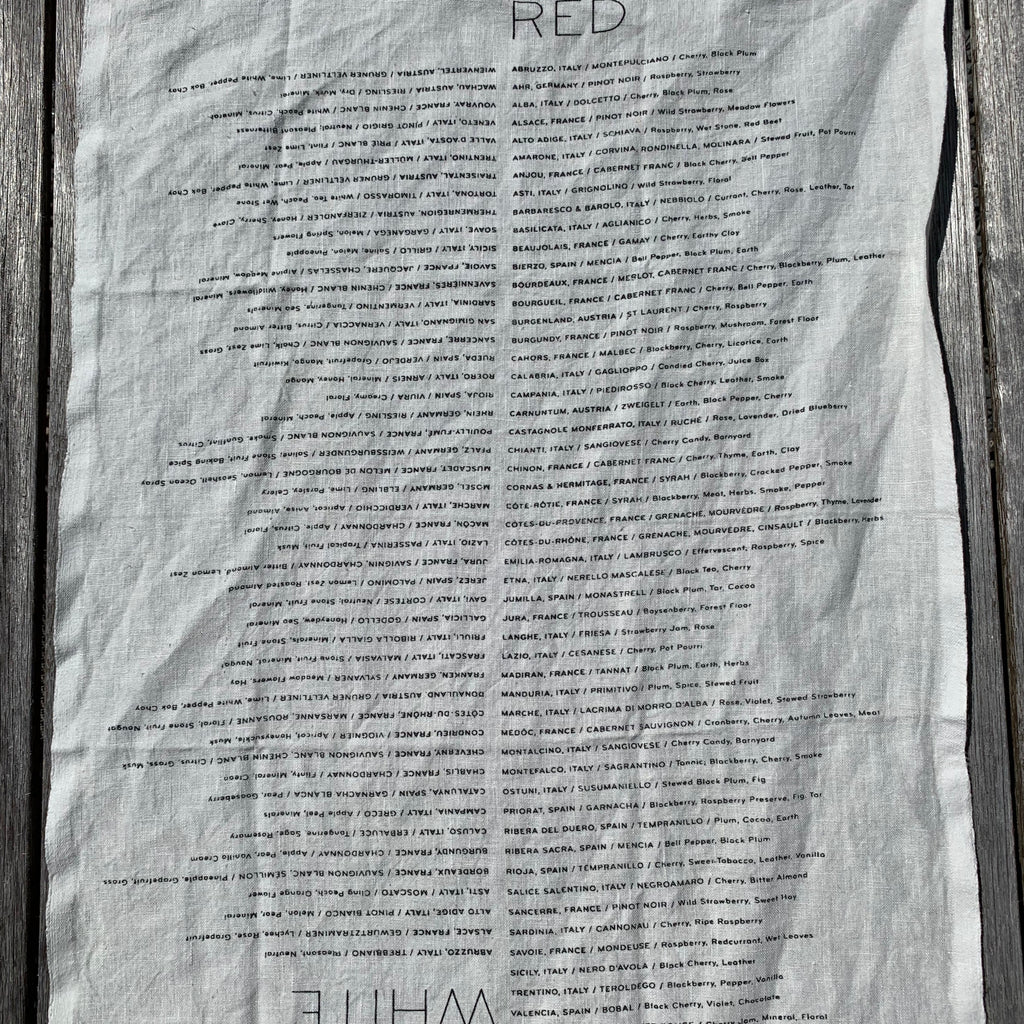 RED
ABRUZZO, ITALY / MONTEPULCIANO / Cherry, Black Plum
AHR, GERMANY / PINOT NOIR / Raspberry, Strawberry
ALBA, ITALY / DOLCETTO / Cherry, Black Plum, Rose
ALSACE, FRANCE / PINOT NOIR / Wild Strawberry, Meadow Flowers
ALTO ADIGE, ITALY / SCHIAVA / Raspberry, Wet Stone, Red Beet
AMARONE, ITALY / CORVINA, RONDINELLA, MOLINARA / Stewed Fruit, Pot Pourri
ANJOU, FRANCE / CABERNET FRANC / Black Cherry, Bell Pepper
ASTI, ITALY / GRIGNOLINO / Wild Strawberry, Floral
BARBARESCO & BAROLO, ITALY / NEBBIOLO / Currant, Cherry, Rose, Leather, Tar
BASILICATA, ITALY / AGLIANICO / Cherry, Herbs, Smoke
BEAUJOLAIS, FRANCE / GAMAY / Cherry, Earthy Clay
BIERZO, SPAIN / MENCIA / Bell Pepper, Black Plum, Earth
BOURDEAUX, FRANCE / MERLOT, CABERNET FRANC / Cherry, Blackberry, Plum, Leather
BOURGUEIL, FRANCE / CABERNET FRANC / Cherry, Bell Pepper, Earth
BURGENLAND, AUSTRIA / ST LAURENT / Cherry, Raspberry
BURGUNDY, FRANCE / PINOT NOIR / Raspberry, Mushroom, Forest Floor
CAHORS, FRANCE / MALBEC / Blackberry, Cherry, Licorice, Earth
CALABRIA, ITALY / GAGLIOPPO / Candied Cherry, Juice Box
CAMPANIA, ITALY / PIEDIROSSO / Black Cherry, Leather, Smoke
CARNUNTUM, AUSTRIA / ZWEIGELT / Earth, Black Pepper, Cherry
CASTAGNOLE MONFERRATO, ITALY / RUCHÉ / Rose, Lavender, Dried Blueberry
CHIANTI, ITALY / SANGIOVESE / Cherry Candy, Barnyard
CHINON, FRANCE / CABERNET FRANC / Cherry, Thyme, Earth, Clay
CORNAS & HERMITAGE, FRANCE / SYRAH / Blackberry, Cracked Pepper, Smoke
CÔTE-RÔTIE, FRANCE / SYRAH / Blackberry, Meat, Herbs, Smoke, Pepper
CÔTES-DU-PROVENCE, FRANCE / GRENACHE, MOURVÈDRE / Raspberry, Thyme, Lavender
CÔTES-DU-RHÔNE, FRANCE / GRENACHE, MOURVÈDRE, CINSAULT / Blackberry, Herbs
EMILIA-ROMAGNA, ITALY / LAMBRUSCO / Effervescent, Raspberry, Spice
ETNA, ITALY / NERELLO MASCALESE / Black Tea, Cherry
JUMILLA, SPAIN / MONASTRELL / Black Plum, Tar, Cocoa
JURA, FRANCE / TROUSSEAU / Boysenberry, Forest Floor
LANGHE, ITALY / FRIESA / Strawberry Jam, Rose
LAZIO, ITALY / CESANESE / Cherry, Pot Pourri
MADIRAN, FRANCE / TANNAT / Black Plum, Earth, Herbs
MANDURIA, ITALY / PRIMITIVO / Plum, Spice, Stewed Fruit
MARCHE, ITALY / LACRIMA DI MORRO D'ALBA / Rose, Violet, Stewed Strawberry
MEDÓC, FRANCE / CABERNET SAUVIGNON / Cranberry, Cherry, Autumn Leaves, Meat
MONTALCINO, ITALY / SANGIOVESE / Cherry Candy, Barnyard
MONTEFALCO, ITALY / SAGRANTINO / Tannic, Blackberry, Cherry, Smoke
OSTUNI, ITALY / SUSUMANIELLO / Stewed Black Plum, Fig
PRIORAT, SPAIN / GARNACHA / Blackberry, Raspberry Preserve, Fig, Tar
RIBERA DEL DUERO, SPAIN / TEMPRANILLO / Plum, Cocoa, Earth
RIBERA SACRA, SPAIN / MENCIA / Bell Pepper, Black Plum
RIOJA, SPAIN / TEMPRANILLO / Cherry, Sweet Tobacco, Leather, Vanilla
SALICE SALENTINO, ITALY / NEGROAMARO / Cherry, Bitter Almond
SANCERRE, FRANCE / PINOT NOIR / Wild Strawberry, Sweet Hay
SARDINIA, ITALY / CANNONAU / Cherry, Ripe Raspberry
SAVOIE, FRANCE / MONDEUSE / Raspberry, Redcurrant, Wet Leaves
SICILY, ITALY / NERO D'AVOLA / Black Cherry, Leather
TRENTINO, ITALY / TEROLDEGO / Blackberry, Pepper, Vanilla
VALENCIA, SPAIN / BOBAL / Black Cherry, Violet, Chocolate
Cherry Jam, Mineral, Floral
WHITE
ABRUZZO, ITALY / TREBBIANO / Pleasant, Neutral
ALSACE, FRANCE / GEWÜRTZTRAMINER / Lychee, Rose, Grapefruit
ALTO ADIGE, ITALY / PINOT BIANCO / Melon, Pear, Mineral
ASTI, ITALY / MOSCATO / Cling Peach, Orange Flower
BORDEAUX, FRANCE / SAUVIGNON BLANC, SEMILLON / Pineapple, Grapefruit, Grass
BURGUNDY, FRANCE / CHARDONNAY / Apple, Pear, Vanilla Cream
CALUSO, ITALY / ERBALUCE / Tangerine, Sage, Rosemary
CAMPANIA, ITALY / GRECO / Apple Peel, Minerals
CATALUNYA, SPAIN / GARNACHA BLANCA / Pear, Gooseberry
CHABLIS, FRANCE / CHARDONNAY / Flinty, Mineral, Clean
CHEVERNY, FRANCE / SAUVIGNON BLANC, CHENIN BLANC / Citrus, Grass, Musk
CONDRIEU, FRANCE / VIOGNIER / Apricot, Honeysuckle, Musk
CÔTES-DU-RHÔNE, FRANCE / MARSANNE, ROUSANNE / Floral, Stone Fruit, Nougat
DONAULAND, AUSTRIA / GRÜNER VELTLINER / Lime, White Pepper, Bok Choy
FRANKEN, GERMANY / SYLVANER / Meadow Flowers, Hay
FRASCATI, ITALY / MALVASIA / Stone Fruit, Mineral, Nougat
FRIULI, ITALY / RIBOLLA GIALLA / Minerals, Stone Fruit
GALLICIA, SPAIN / GODELLO / Honeydew, Sea Mineral
GAVI, ITALY / CORTESE / Neutral, Stone Fruit, Mineral
JEREZ, SPAIN / PALOMINO / Lemon Zest, Roasted Almond
JURA, FRANCE / SAVIGNIN, CHARDONNAY / Bitter Almond, Lemon Zest
LAZIO, ITALY / PASSERINA / Tropical Fruit, Musk
MACÔN, FRANCE / CHARDONNAY / Apple, Citrus, Floral
MARCHE, ITALY / VERDICCHIO / Apricot, Anise, Almond
MOSEL, GERMANY / ELBLING / Lime, Parsley, Celery
MUSCADET, FRANCE / MELON DE BOURGOGNE / Lemon, Seashell, Ocean Spray
PFALZ, GERMANY / WEISSBURGUNDER / Saline, Stone Fruit, Baking Spice
POUILLY-FUMÉ, FRANCE / SAUVIGNON BLANC / Smoke, Gunflint, Citrus
RHEIN, GERMANY / RIESLING / Apple, Peach, Mineral
RIOJA, SPAIN / VIURA / Creamy, Floral
ROERO, ITALY / ARNEIS / Mineral, Honey, Mango
RUEDA, SPAIN / VERDEJO / Grapefruit, Mango, Kiwifruit
SANCERRE, FRANCE / SAUVIGNON BLANC / Chalk, Lime Zest, Grass
SAN GIMIGNANO, ITALY / VERNACCIA / Citrus, Bitter Almond
SARDINIA, ITALY / VERMENTINO / Tangerine, Sea Minerals
SAVENNIÈRES, FRANCE / CHENIN BLANC / Honey, Wildflowers, Mineral
SAVOIE, FRANCE / JACQUÈRE, CHASSELAS / Alpine Meadow, Mineral
SICILY, ITALY / GRILLO / Saline, Melon, Pineapple
SOAVE, ITALY / GARGANEGA / Melon, Spring Flowers
THERMENREGION, AUSTRIA / ZIERFANDLER / Honey, Sherry, Clove
TORTONA, ITALY / TIMORASSO / White Tea, Peach, Wet Stone
TRAISENTAL, AUSTRIA / GRÜNER VELTLINER / Lime, White Pepper, Bok Choy
TRENTINO, ITALY / MÜLLER-THURGAU / Apple, Pear, Mineral
VALLE D'AOSTA, ITALY / PRIÉ BLANC / Flint, Lime Zest
VENETO, ITALY / PINOT GRIGIO / Neutral, Pleasant Bitterness
VOUVRAY, FRANCE / CHENIN BLANC / White Peach, Citrus, Mineral
WACHAU, AUSTRIA / RIESLING / Dry, Musk, Mineral
WIENVERTEL, AUSTRIA / GRÜNER VELTLINER / Lime, White Pepper, Bok Choy